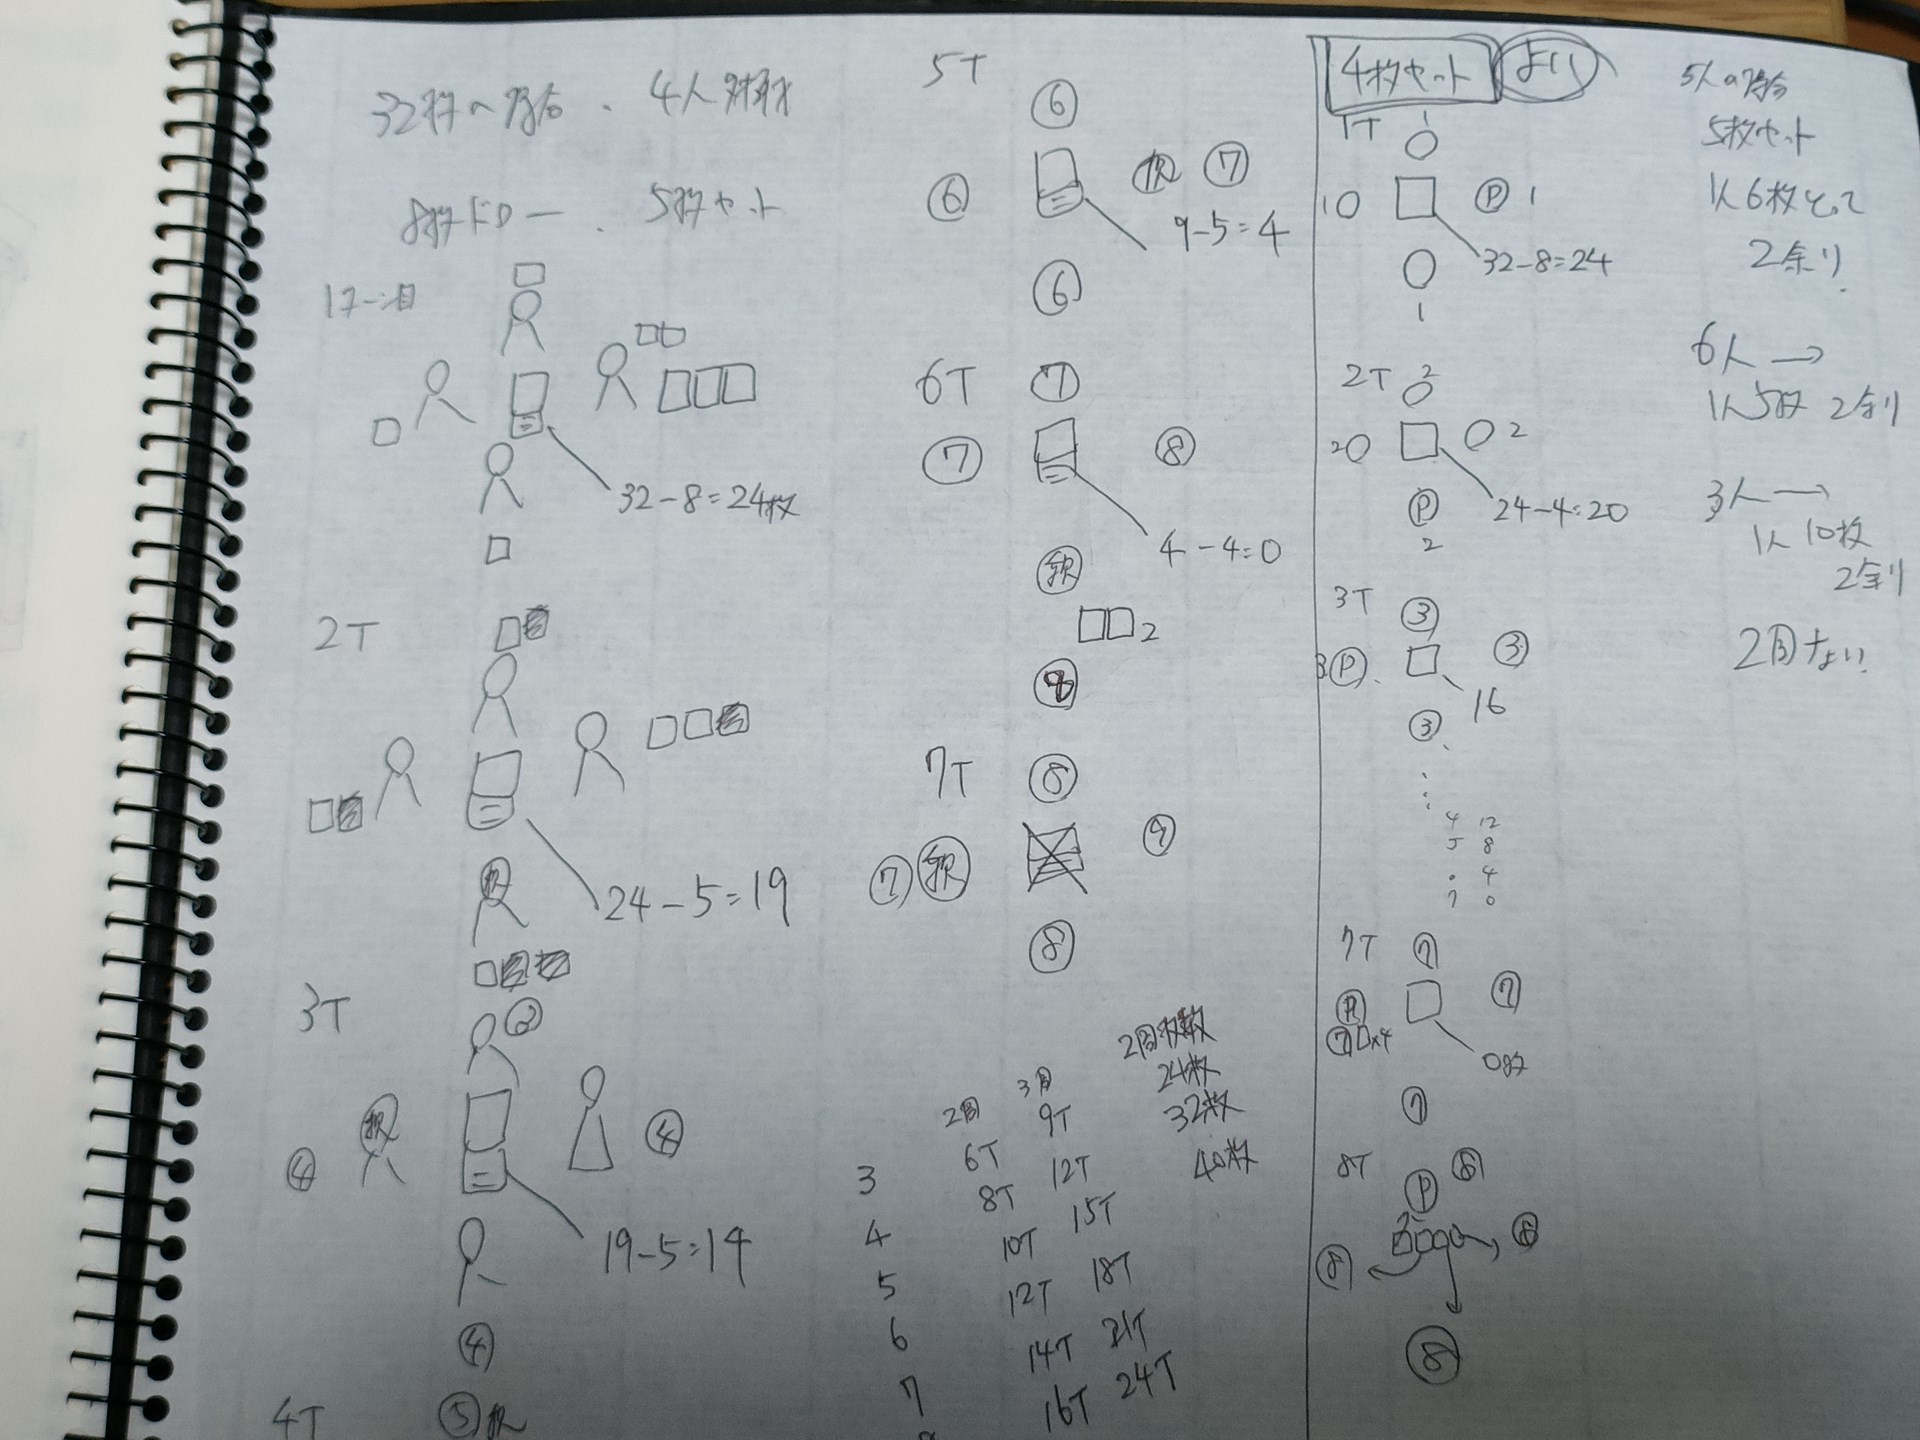 32枚の場合、4人対戦
8枚ドロー、5枚セット
1ターン目
32-8=24枚
2T
24-5=19
3T
②
④
④
19-5=14
④
4T
⑤
5T
⑥
⑥
⑦
9-5=4
⑥
6T
⑦
⑦
⑧
4-4=0
2
⑧
7T
⑧
⑦
⑨
⑧
2周 3周 2周枚数
3 6T 9T 24枚
4 8T 12T 32枚
5 10T 15T 40枚
6 12T 18T
7 14T 21T
16T 24T
4枚セット よい
1T
1
1
Ⓟ 1
32-8=24
1
2T
2
2
2
24-4=20
Ⓟ
2
3T
③
3 Ⓟ
③
16
③
4 12
5 8
4
7 0
7T
⑦
Ⓟ
⑦
⑦ ×4
0枚
⑦
8T
Ⓟ
⑧
⑧
⑧
⑧
5人の場合
5枚セット
1人6枚とって
2余り
6人→
1人5枚 2余り
3人→
1人10枚
2余り